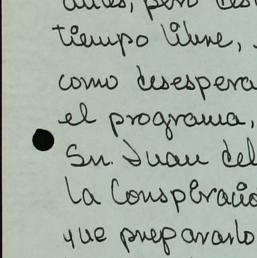 antes, pero des
tiempo libre,
como desespera
el programa,
Sn. Juan del
la Conspiració
que prepararlo